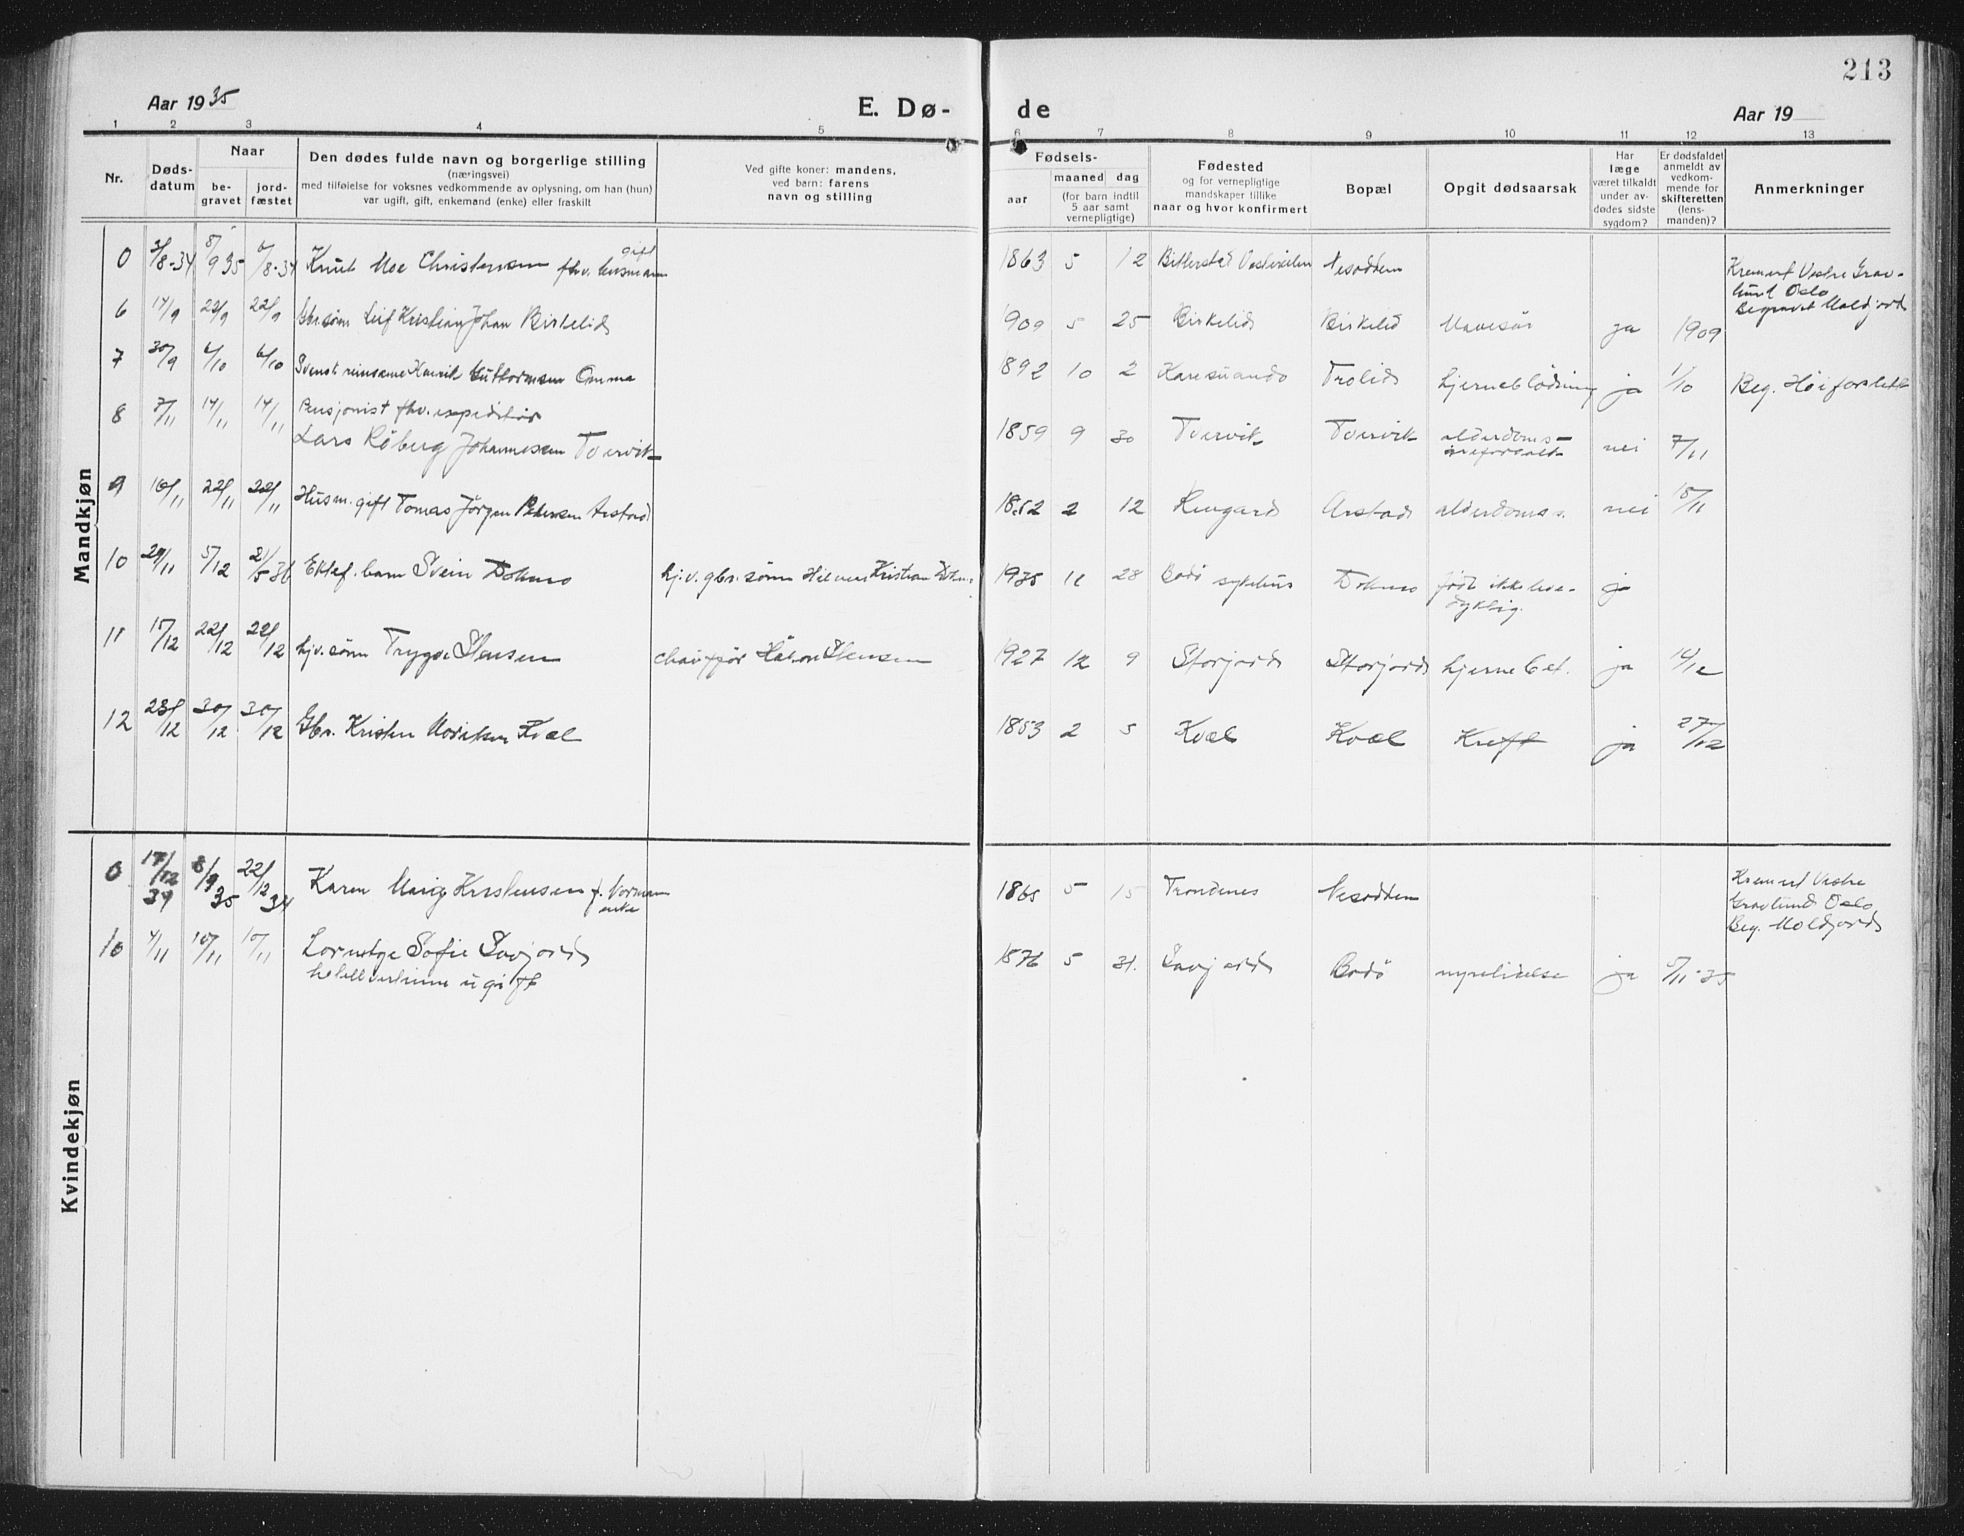 213
Aar 1935
E. Dø-
de
Aar 19
1 2 3 4 5 6 7 8 9 10 11 12 13
Nr.
Døds-
datum
Naar
be-
gravet
jord-
fæstet
Den dødes fulde navn og borgerlige stilling
(næringsvei)
med tilføielse for voksnes vedkommende av oplysning, om han (hun)
var ugift, gift, enkemand (enke) eller fraskilt
Ved gifte koner: mandens,
ved barn: farens
navn og stilling
Fødsels-
aar
maaned dag
(for barn indtil
5 aar samt
vernepligtige)
Fødested
og for vernepligtige
mandskaper tillike
naar og hvor konfirmert
Bopæl
Opgit dødsaarsak
Har
læge
været tilkaldt
under av-
dødes sidste
sygdom?
Er dødsfaldet
anmeldt av
vedkom-
mende for
skifteretten
(lens-
manden)?
Anmerkninger
Mandkjøn
0 3/8-34 8/9 35 6/8-34 Knut Moe Christensen fhv. husmann gift 1863 5 12 Nesodden
Kremert Vestre Grav-
lund Oslo
Begravet Moldjord
6 17/9 22/9 22/9 Gbr.sønn Leif Kristian Johan Birkelid 1909 5 25 Birkelid Birkelid Mavesår ja 1909
7 30/9 6/10 6/10 Svensk Henrik Guttormsen Omma 1892 10 2 Karesuando Trolid hjerneblødning ja 1/10 Beg. Høiforslett
8 7/11 14/11 14/11 Pensjonist fhv. ekspeditør
Lars Röberg Johannesen Tvervik 1859 9 30 Tvervik Tvervik alderdoms- nei 7/11
9 16/11 22/11 22/11 Husm. gift Tomas Jörgen Pedersen Arstad 1852 2 12 Rengård Arstad alderdoms s. nei 18/11
10 29/11 5/12 21/5 36 Ektef. barn Svein Dokmo hj.v. gbr. sønn Hilmar Kristian Dokmo 1935 11 28 Bodö sykehus Dokmo født ikke leve-
dyktig. ja
11 15/12 22/12 22/12 hjv. sønn Trygve Stensen chauffør Håkon Stensen 1927 12 9 Storjord Storjord hjernebet. ja 16/12
12 23/12 30/12 30/12 Gbr. Kristen Kvæl 1853 2 5 Kvæl Kvæl Kreft ja 27/12
Kvindekjøn
0 17/12 34 8/9 35 22/12 34 Karen Marie Kristensen f. Normann
enke 1865 5 15 Trondenes Nesodden
Kremert Vestre
Gravlund Oslo
Beg. Moldjord
10 4/11 10/11 10/11 Lorntze Sofie Savjord
hotellvertinne ugift 1876 5 31. Savjord Bodö nyrelidelse ja 5/11-35